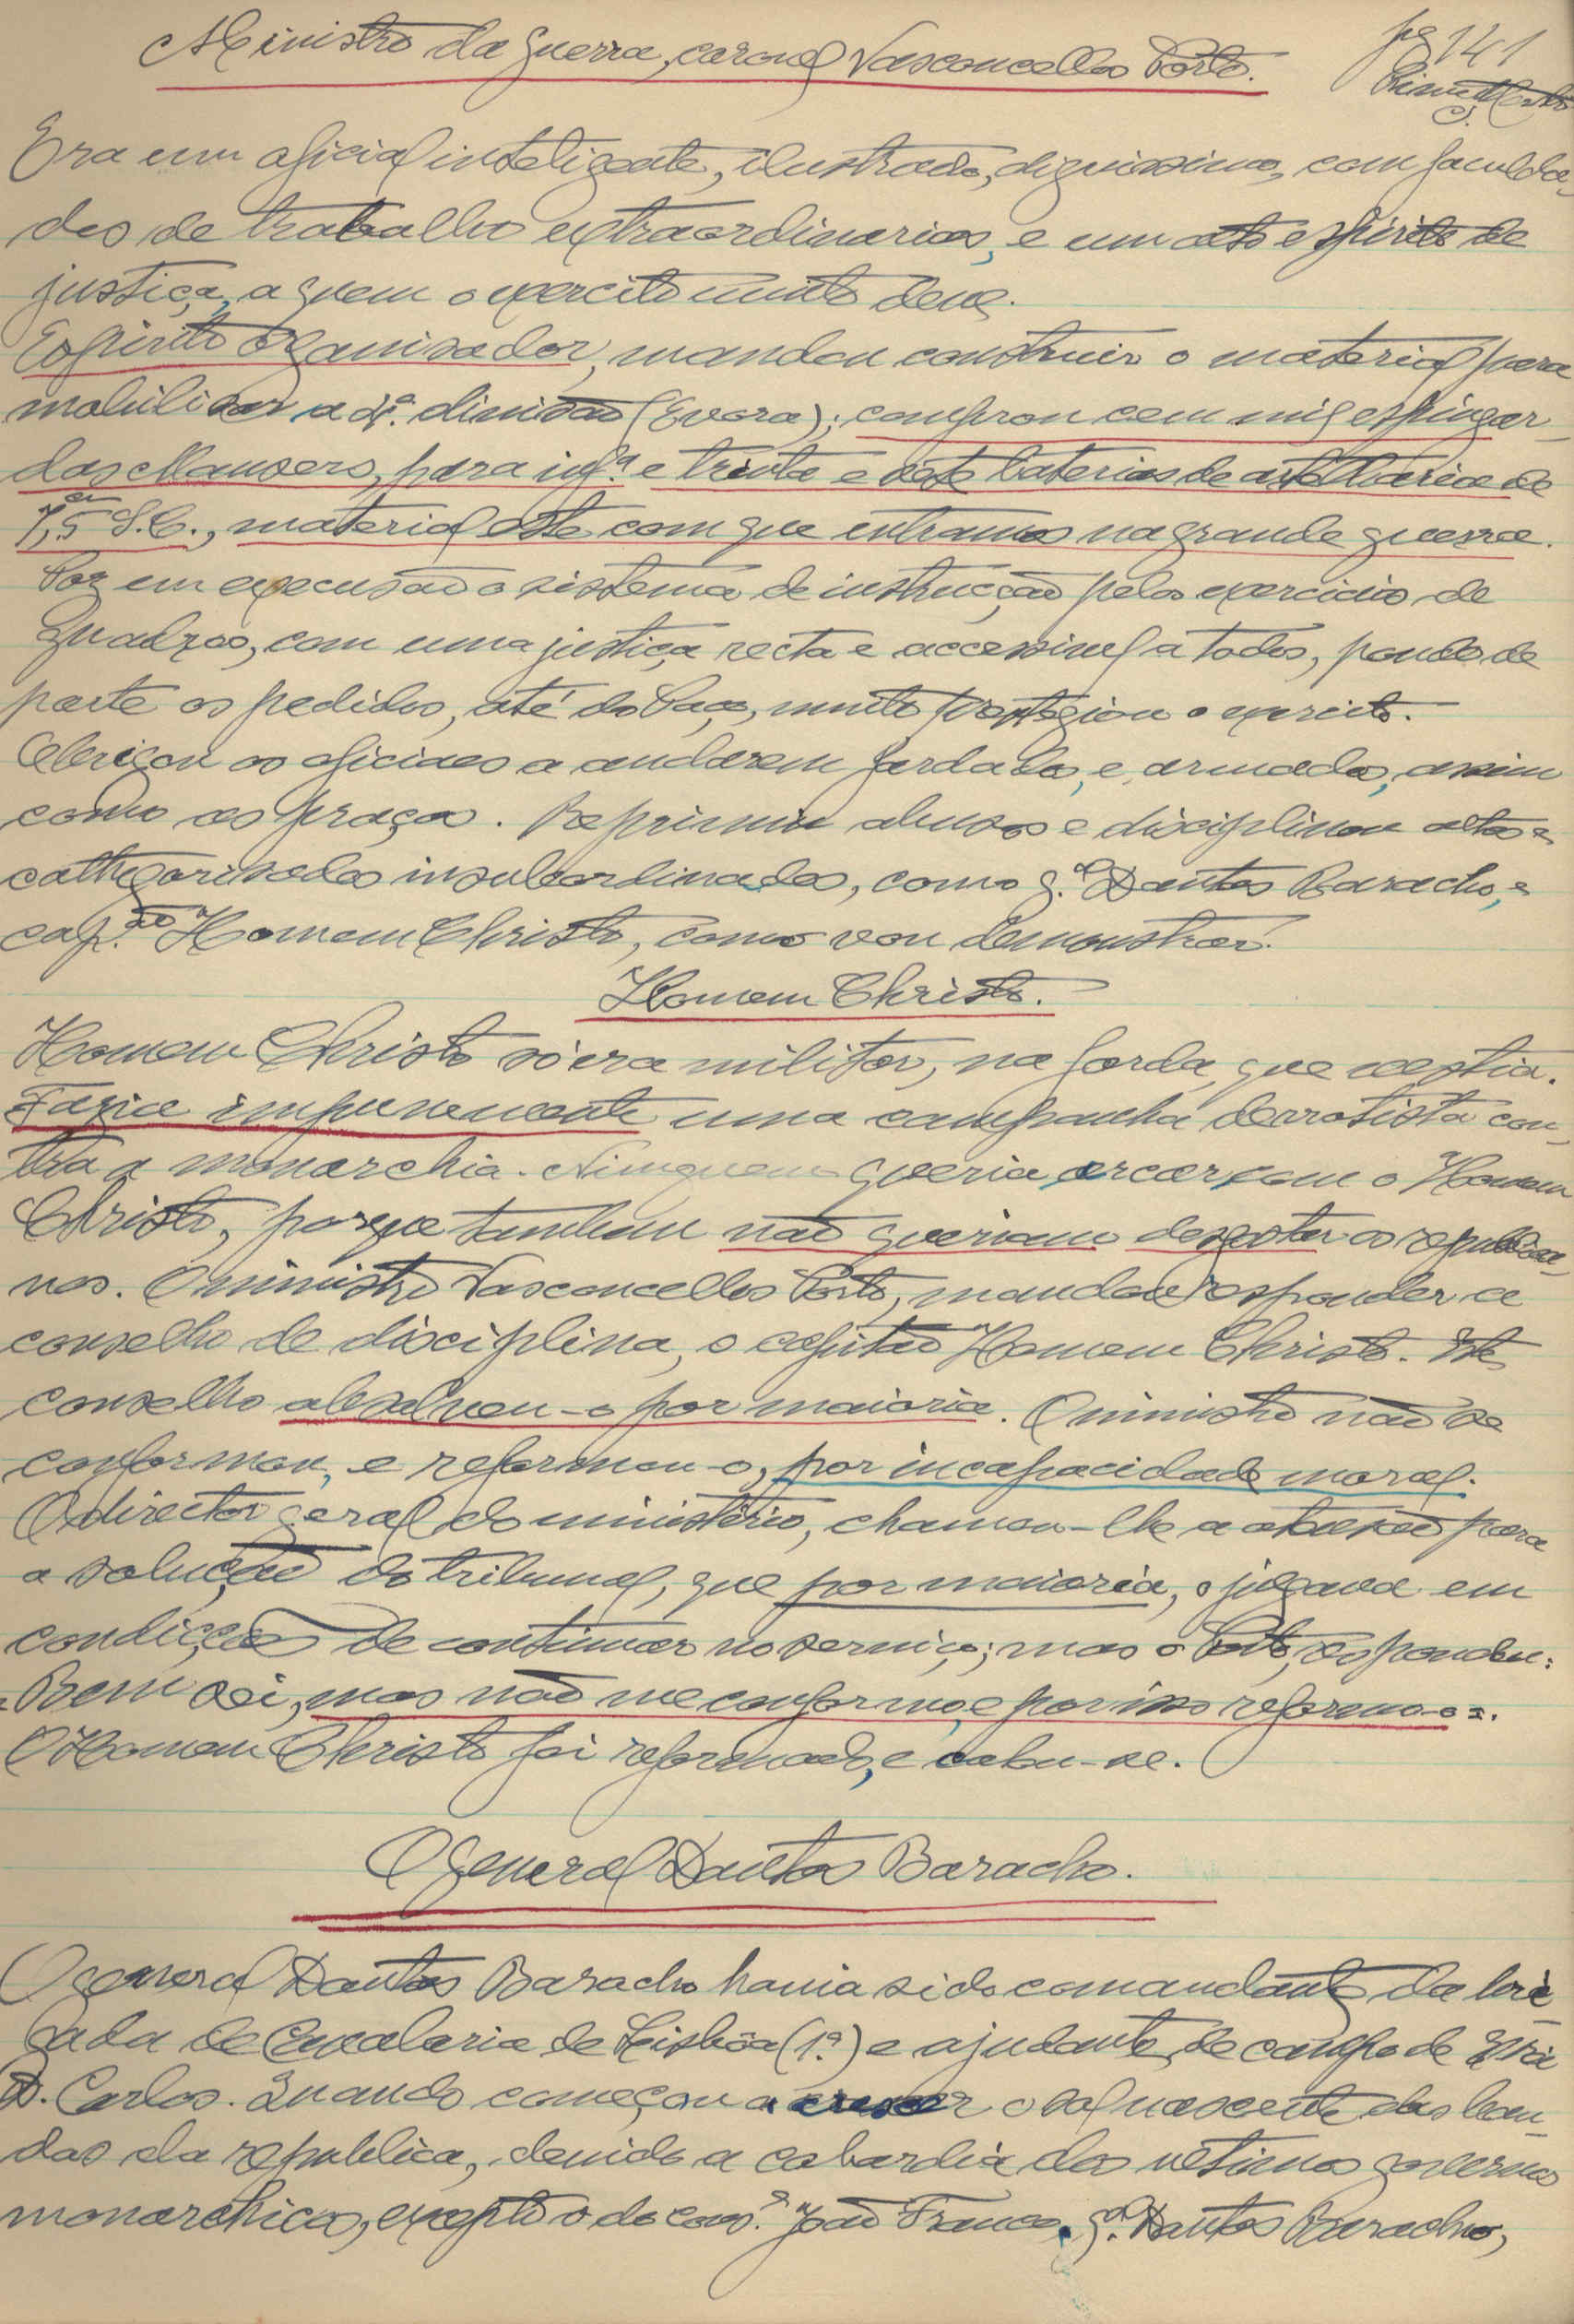 Ministro da guerra, coronel Vasconcellos Porto.
pg 141
Era um oficial inteligente, ilustrado, dignissimo, com faculda-
des de trabalho extraordinarias, e um alto espirito de
justiça, a quem o exercito muito deve.
Espirito organisador, mandou construir o material para
mobilisar a 4ª. divisão (Evora); comprou cem mil espingar-
das Mausers, para infª. e trinta e sete baterias de artelharia de
7,5 cm S.C., material este com que entramos na grande guerra.
Poz em execusão o sistema de instrucção pelos exercicios de
Quadros, com uma justiça recta e accessivel a todos, pondo de
parte os pedidos, até do Paço, muito prestegiou o exercito.
Obrigou os oficiaes a andarem fardados, e armados, assim
como as praças. Reprimiu abusos e disciplinou altos e
cathegorisados insubordinados, como g.al Dantas Baracho, e
cap.tão Homem Christo, como vou demonstrar.
Homem Christo.
Homem Christo só era militar, na farda que vestia.
Fazia impunemente uma campanha derrotista con-
tra a monarchia. Ninguem queria arcar com o Homem
Christo, porque tambem não queriam desgostar os republica-
nos. O ministro Vasconcellos Porto, mandou responder a
conselho de disciplina, o capitão Homem Christo. Este
conselho absolveu-o por maioria. O ministro não se
conformou, e reformou-o, por incapacidade moral.
O director geral do ministério, chamou-lhe a atensão para
a solução do tribunal, que por maioria, o julgava em
condicções de continuar no serviço; mas o Porto, respondeu:
=Bem sei, mas não me conformo, e por isso reformo-o=.
O Homem Christo foi reformado, e calou-se.
O general Dantas Baracho.
O general Dantas Baracho havia sido comandante da bri-
gada de Cavalaria de Lisbôa (1ª.) e ajudante de campo de El-Rei
D. Carlos. Quando começou a crescer o sol nascente das ban-
das da republica, devido a cobardia dos ultimos governos
monarchicos, exepto o do cons.º João Franco, g.al Dantas Baracho,